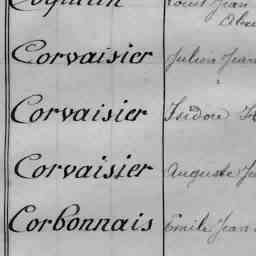 Coquelin Louis Jean
Corvaisier Julien Jean
Corvaisier Isidore
Corvaisier Auguste
Corbonnais Emile Jean